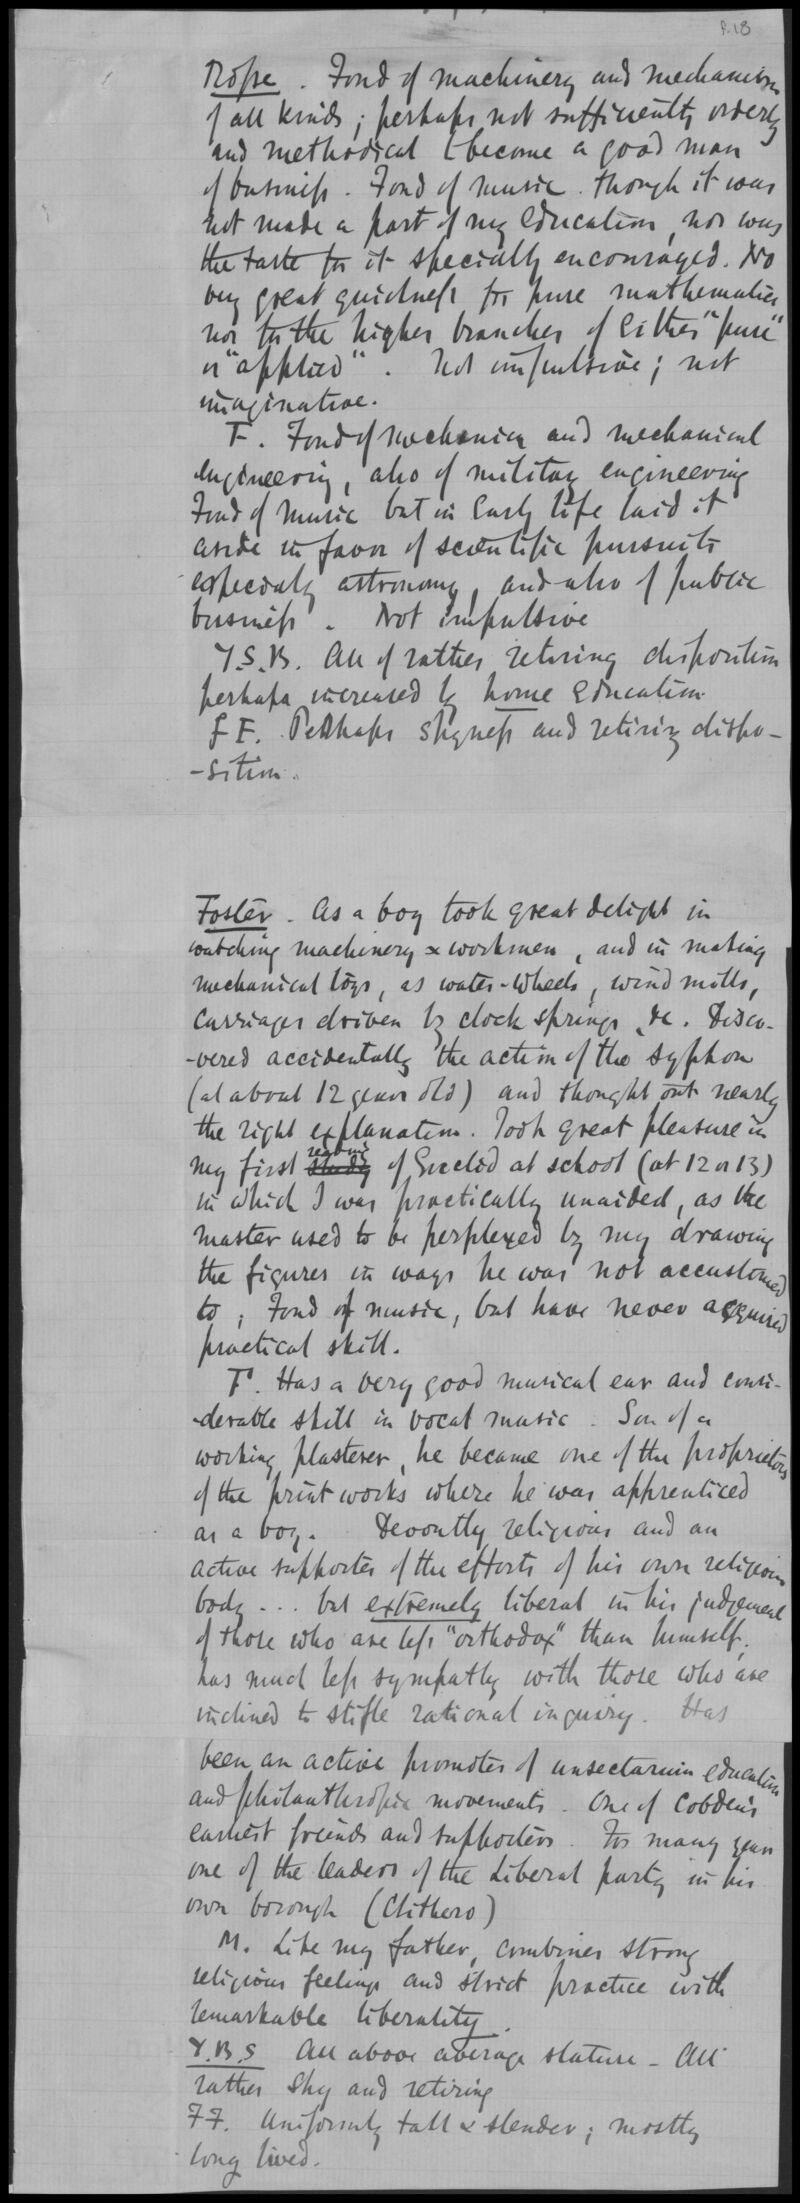 P. 18
Rosse. Fond of machinery and mechanism
of all kinds; perhaps not sufficiently orderly
and methodical to become a good man
of business. Fond of music. though it was
not made a part of my education, nor was
the taste for it specially encouraged. No
very great quickness for pure mathematics
nor for the higher branches of either "pure"
or "applied". Not impulsive; not
imaginative.
F. Fond of mechanics and mechanical
engineering, also of military engineering
Fond of music but in early life laid it
aside in favor of scientific pursuits
especially astronomy, and also of public
business. Not impulsive
Y.S.B. All of rather retiring disposition
perhaps increased by home education
f F. Perhaps shyness and retiring dispo-
-sition.
Foster. As a boy took great delight in
watching machinery & workmen, and in making
mechanical toys, as water-wheels, wind mills,
carriages driven by clock springs, &c. Disco-
-vered accidentally the action of the syphon
(at about 12 years old) and thought out nearly
the right explanation. Took great pleasure in
my first study reading of Euclid at school (at 12 or 13)
in which I was practically unaided, as the
master used to be perplexed by my drawing
the figures in ways he was not accustomed
to; Fond of music, but have never acquired
practical skill.
F. Has a very good musical ear and consi-
-derable skill in vocal music. Son of a
working plasterer, he became one of the proprietors
of the print works where he was apprenticed
as a boy. Devoutly religious and an
active supporter of the efforts of his own religious
body ... but extremely liberal in his judgement
of those who are less "orthodox" than himself;
has much less sympathy with those who are
inclined to stifle rational inquiry. Has
been an active promoter of unsectarian education
and philanthropic movements. One of Cobden's
earliest friends and supporters. For many years
one of the leaders of the Liberal party in his
own borough (Clithero)
M. Like my father, combines strong
religious feelings and strict practice with
remarkable liberality.
Y.B.S All above average stature - All
rather shy and retiring
FF. Uniformly tall & slender; mostly
long lived.